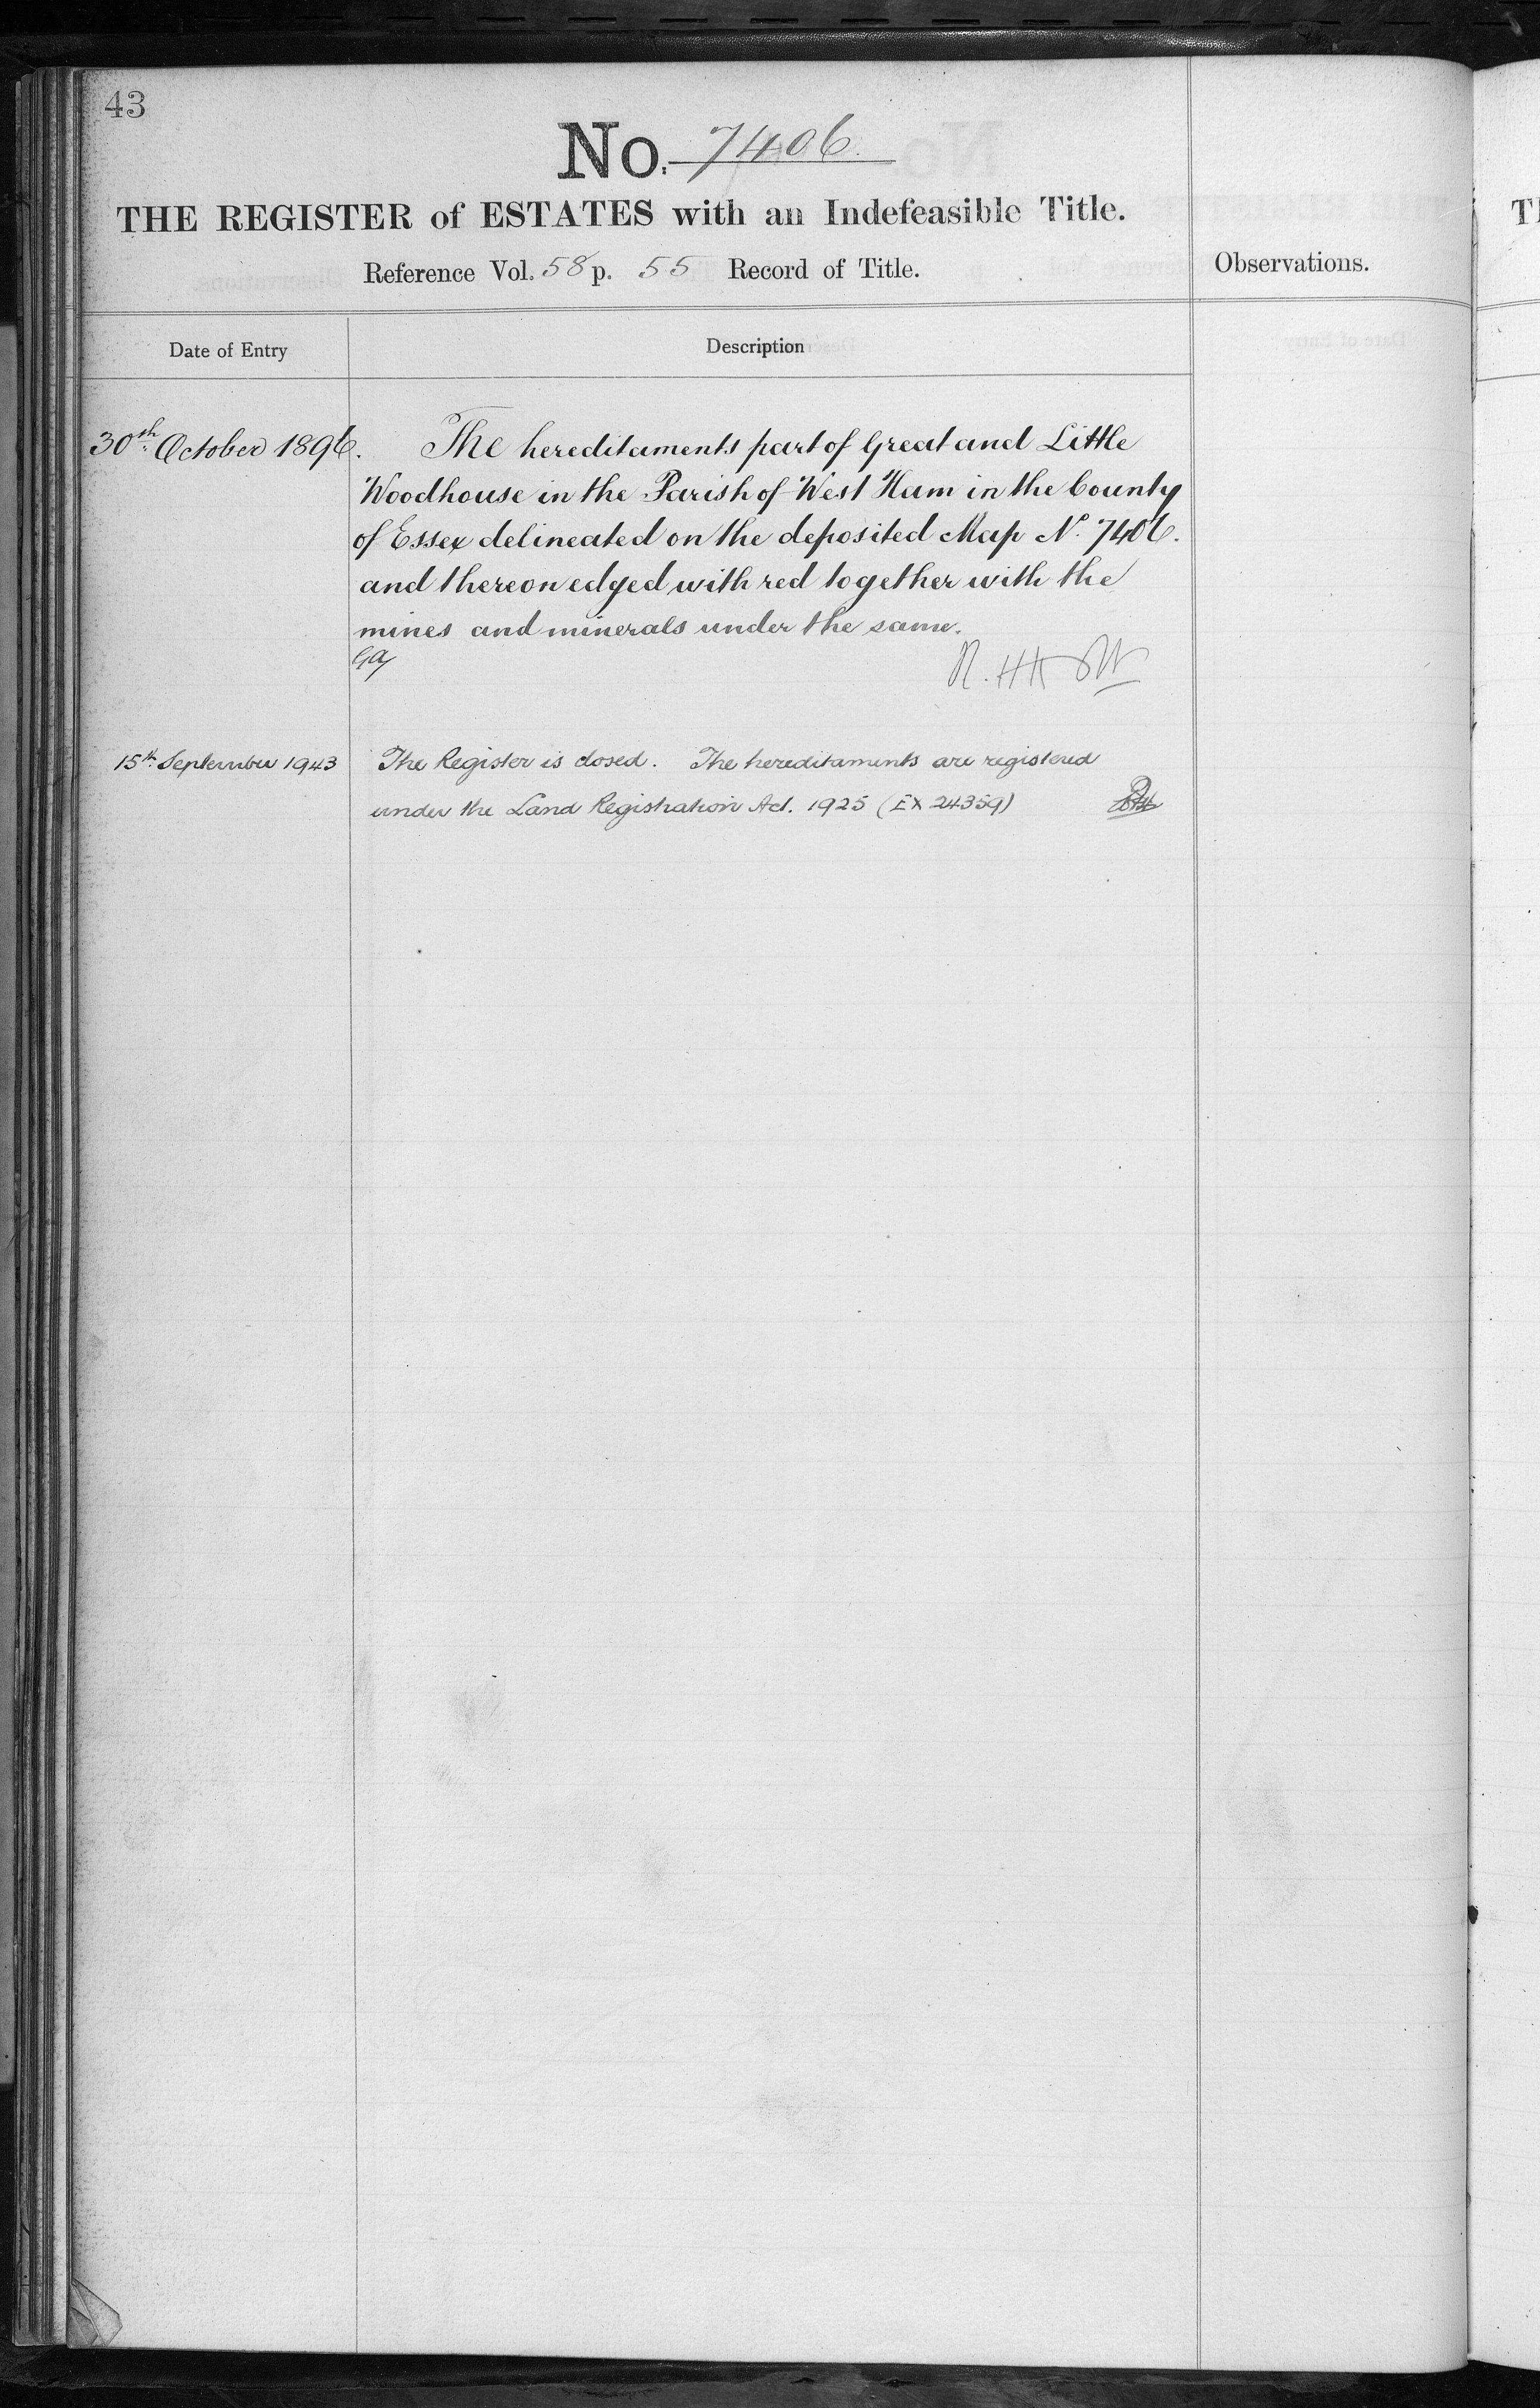 43
No. 7406.
THE REGISTER of ESTATES with an Indefeasible Title.
Reference Vol. 58 p. 55 Record of Title.
Observations.
Date of Entry
Description
30th October 1896. The hereditaments part of Great and Little
Woodhouse in the Parish of West Ham in the County
of Essex delineated on the deposited Map No. 7406.
and thereon edged with red together with the
mines and minerals under the same.
15th September 1943 The Register is closed. The hereditaments are registered
under the Land Registration Act. 1925 (EX 24359)